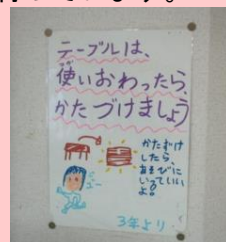 テーブルは、
使いおわったら、
かたづけましょう
かたむけ
したら、
あそびに
いっていい
よ!
3年より